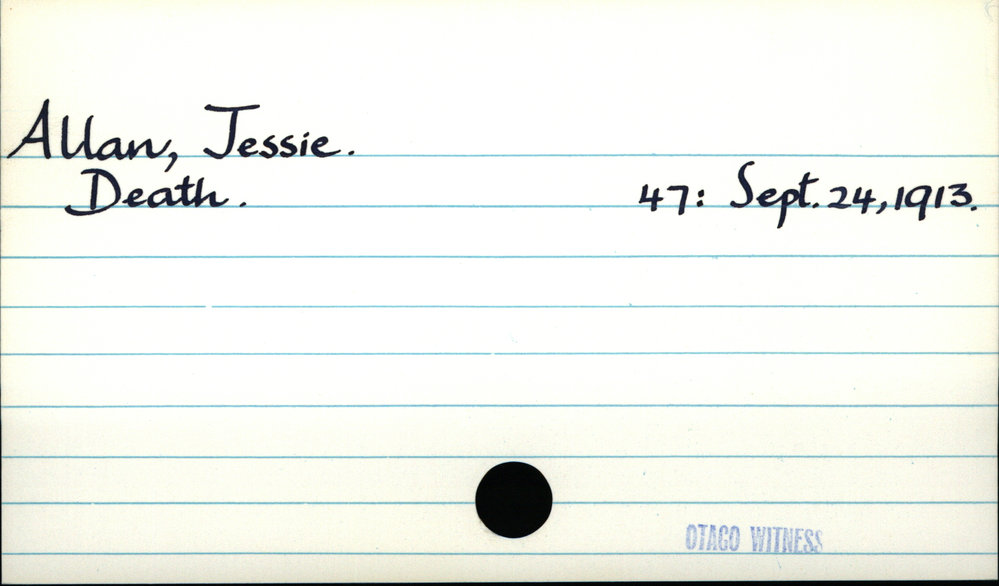 Allan, Jessie.
Death. 47: Sept. 24, 1913.
OTAGO WITNESS